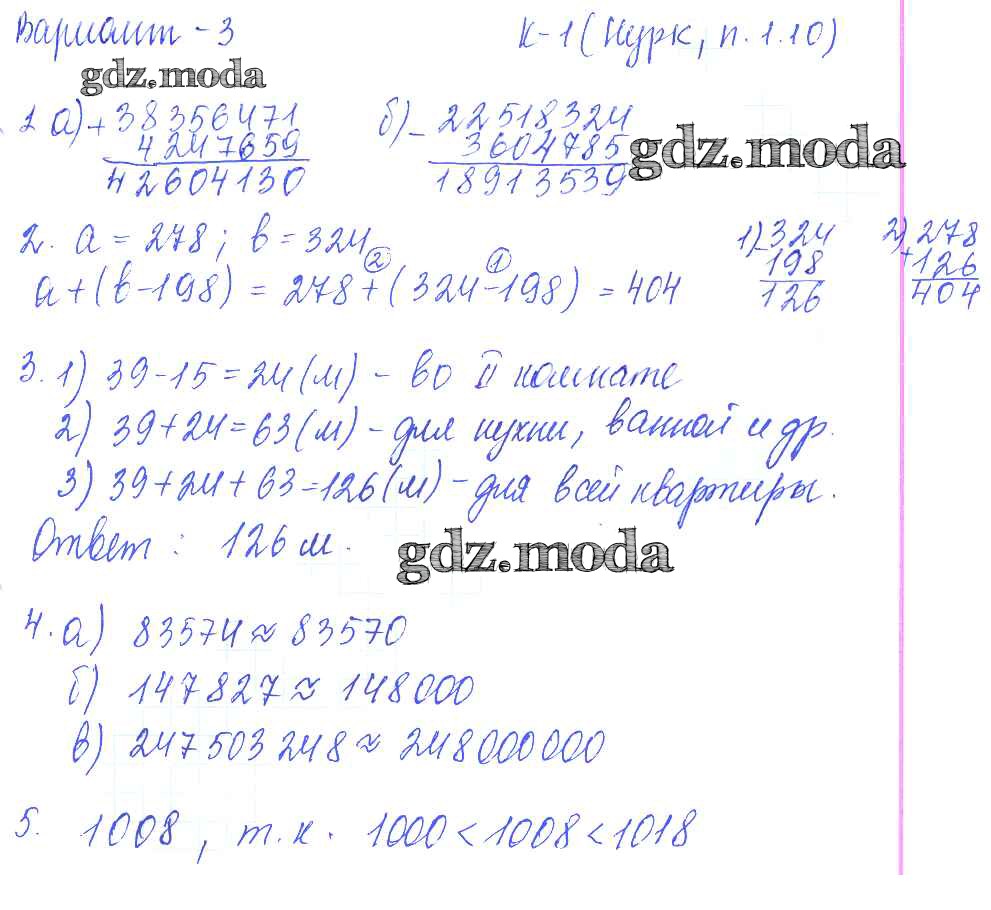 Вариант - 3 К-1 (Нурк, п. 1.10)
gdz.moda
1 а) + 38356471 б) - 22518324
4247659 3604785
42604130 18913539
gdz.moda
2. а = 278; в = 324 1) - 324 2) + 278
198 126
126 404
а + (в - 198) = 278 + (324 - 198) = 404
② ①
3. 1) 39 - 15 = 24 (м) - во II комнате
2) 39 + 24 = 63 (м) - для кухни, ванной и др.
3) 39 + 24 + 63 = 126 (м) - для всей квартиры.
Ответ: 126 м.
gdz.moda
4. а) 83574 ≈ 83570
б) 147827 ≈ 148000
в) 247503248 ≈ 248000000
5. 1008, т.к. 1000 < 1008 < 1018